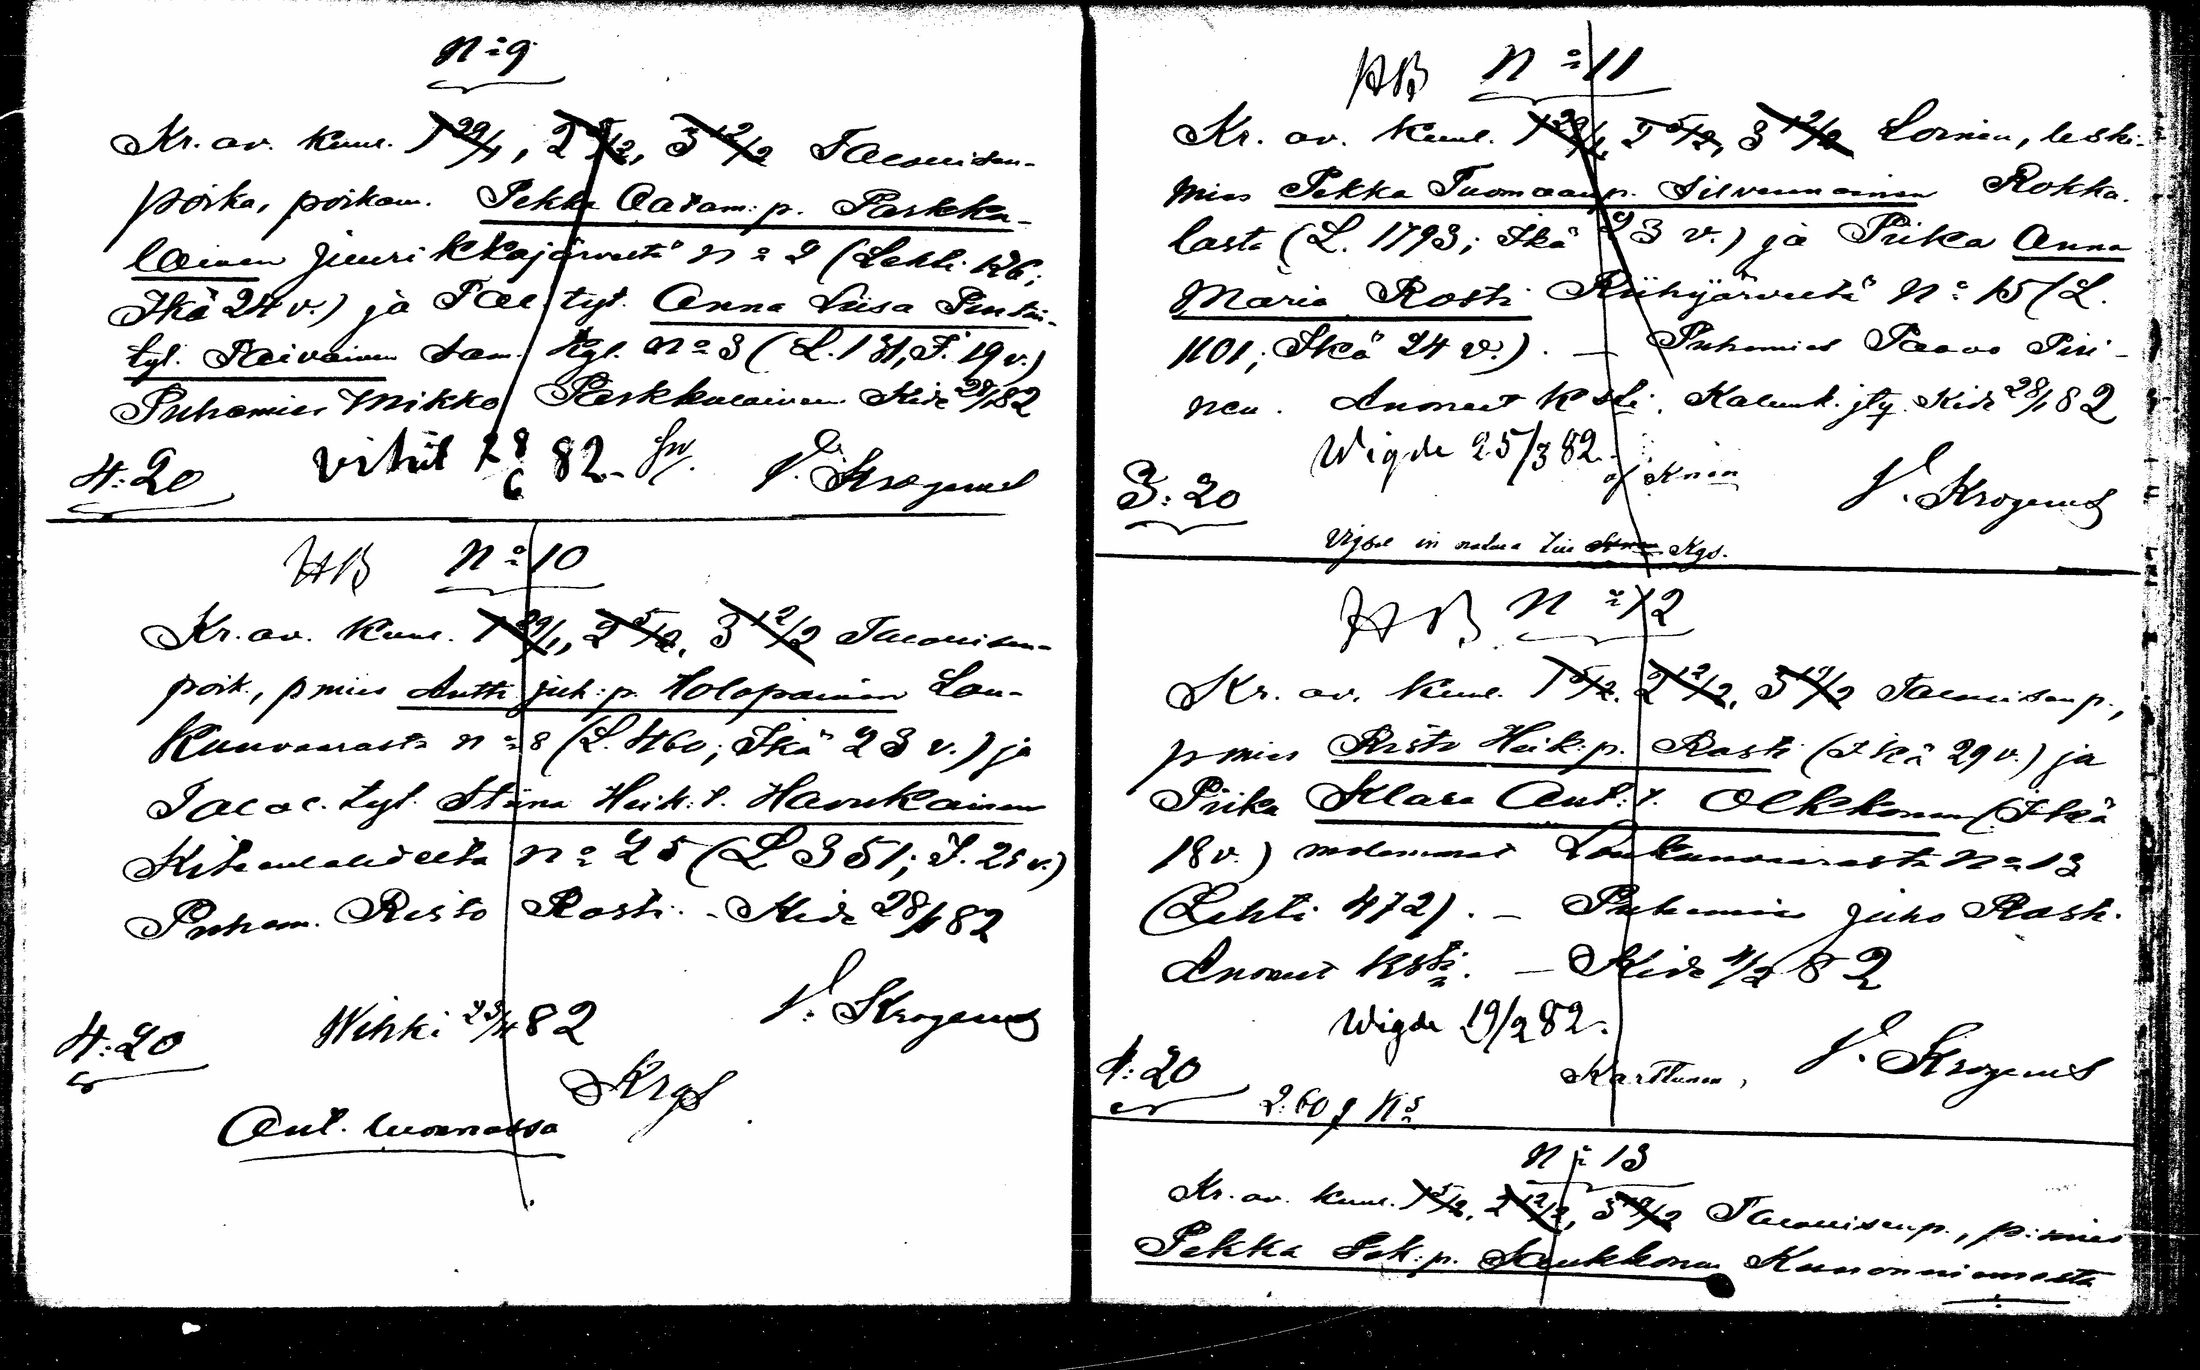 N:o 9
Kr. av. kuul. 1 29/1, 2 5/2, 3 12/2 Talouisen-
poika, poikam. Pekka Aatam: p. Parkka-
lainen Juurikkajärveltä N:o 2 (Lehti 126;
Ikä 24 v.) ja Tal. tyt. Anna Liisa
tyt. Päivänen sam. kyl. N:o 3 (L. 131, I. 19 v.)
Puhemies Mikko Parkkalainen Kide 28/1 82
vihit 28/6 82.
4:20 J. Krogerus
HB N:o 10
Kr. av. kuul. 1 29/1, 2 5/2, 3 12/2 Talouisen-
poik., pmies Antti Juh: p. Holopainen Lou-
kunvaarasta N:o 8 (L. 460; Ikä 23 v.) ja
Taloll. tyt. Stiina Heik: t. Havukainen
Kiteenlahdelta N:o 25 (L 351; I. 25 v.)
Puhem. Risto Rosti. - Kide 28/1 82
J. Krogerus
4:20 Wihki 23/4 82
Krgs
Ant. luonnossa
HB N:o 11
Kr. av. kuul. 1 29/1, 2 5/2, 3 12/2 Loinen, leski-
mies Pekka Tuomaanp. Silvennoinen Rokka-
lasta (L. 1793; Ikä 23 v.) ja Piika Anna
Maria Rosti Riihijärveltä N:o 15 (L.
1101; Ikä 24 v.). — Puhemies Paavo Piri-
nen. Anoneet Kali. Kide 28/1 82
Wigde 25/3 82.
3:20 J. Krogerus
Vigsel in natura Krgs.
HB N:o 12
Kr. av. kuul. 1 5/2, 2 12/2, 3 19/2 Talouisen p.,
pmies Risto Heik: p. Rosti (Ikä 29 v.) ja
Piika Klara Ant: t. Olkkonen (Ikä
18 v.) molemmat Loukunvaarasta N:o 13
(Lehti 472). — Puhemies Juho Rosti.
Anoneet — Kide 4/2 82
Wigde 19/2 82.
Karttunen, J. Krogerus
4:20
N:o 13
Kr. av. kuul. 1 5/2, 2 12/2, 3 19/2 Talouisen p., p: mies
Pekka p. Saukkonen Kunonniemestä